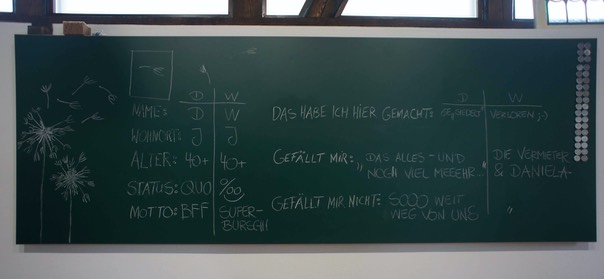 D W
NAME: D W
WOHNORT: J J
ALTER: 40+ 40+
STATUS: QUO %
MOTTO: BFF SUPER-
BURECH
D W
DAS HABE ICH HIER GEMACHT: VERLOREN ;-)
GEFÄLLT MIR: „DAS ALLES - UND DE VERMIETER
NOCH VIEL MEEEHR..." & DANIELA
GEFÄLLT MIR NICHT: SOOO WEIT "
WEG VON UNS